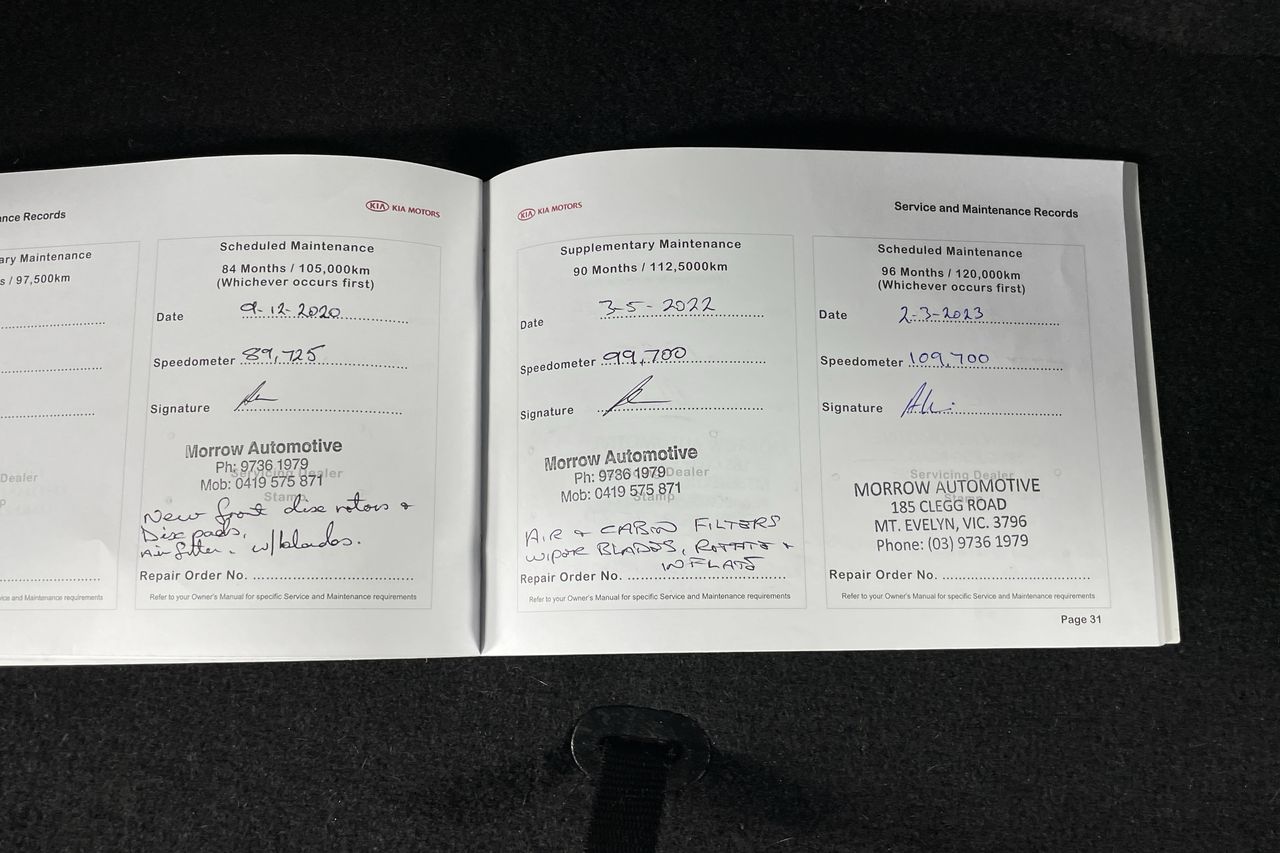 nance Records
ary Maintenance
s / 97,500km
Dealer
p
ice and Maintenance requirements
KIA KIA MOTORS
Scheduled Maintenance
84 Months / 105,000km
(Whichever occurs first)
Date 9-12-2020
Speedometer 89,725
Signature
Servicing Dealer
Stamp
Morrow Automotive
Ph: 9736 1979
Mob: 0419 575 871
New front disc rotors +
Disc pads,
Air filter. w/blades.
Repair Order No.
Refer to your Owner's Manual for specific Service and Maintenance requirements
KIA KIA MOTORS
Service and Maintenance Records
Supplementary Maintenance
90 Months / 112,5000km
Date 3-5-2022
Speedometer 99,700
Signature
Dealer
Stamp
Morrow Automotive
Ph: 9736 1979
Mob: 0419 575 871
AIR + CABIN FILTERS
WIPER BLADES, ROTATE +
INFLATE
Repair Order No.
Refer to your Owner's Manual for specific Service and Maintenance requirements
Scheduled Maintenance
96 Months / 120,000km
(Whichever occurs first)
Date 2-3-2023
Speedometer 109,700
Signature
Servicing Dealer
Stamp
MORROW AUTOMOTIVE
185 CLEGG ROAD
MT. EVELYN, VIC. 3796
Phone: (03) 9736 1979
Repair Order No.
Refer to your Owner's Manual for specific Service and Maintenance requirements
Page 31